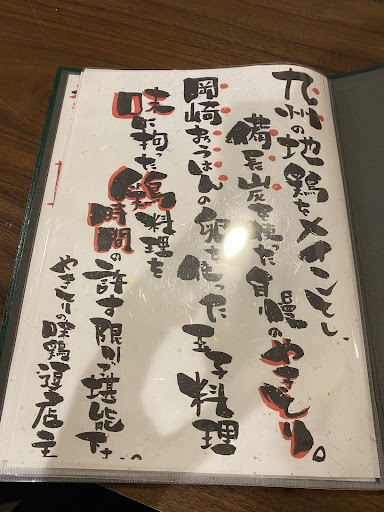 九州の地鶏をメインとし、
備長炭を使った自慢のやきとり。
岡崎おうはんの卵を使った玉子料理
味に拘った鶏料理を
時間の許す限りご堪能下さい。
やきとりの味鶏道店主